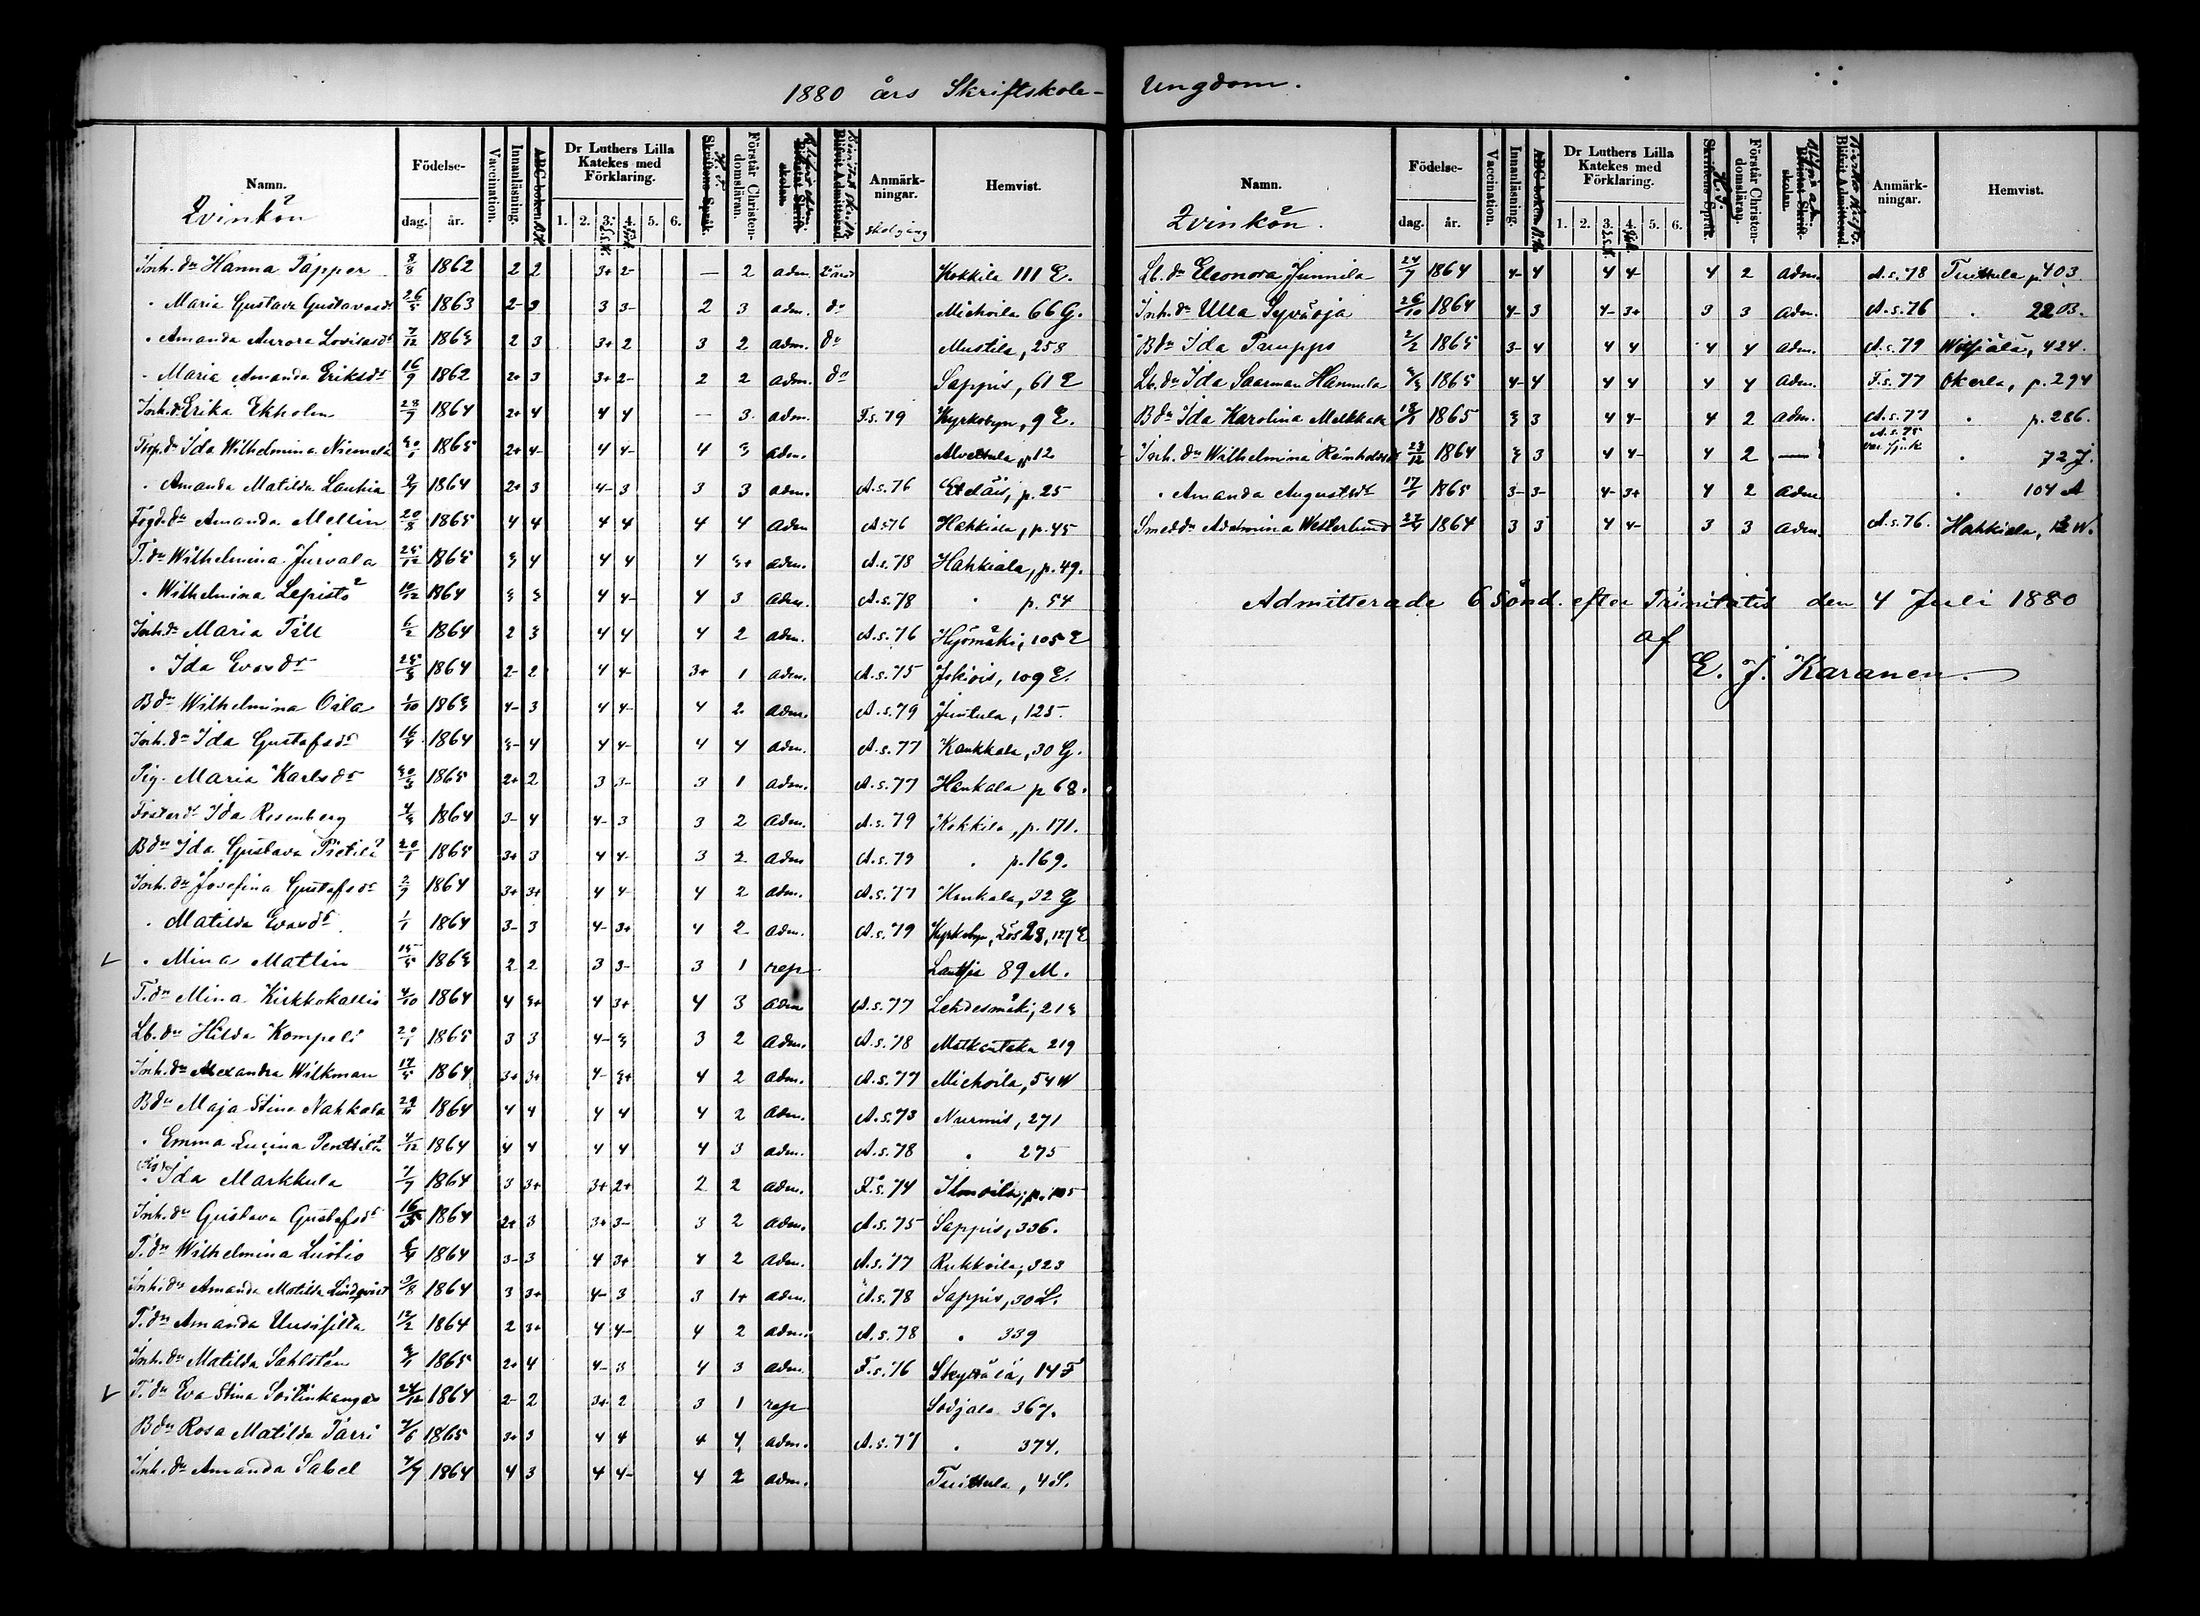 1880 års Skriftskole- Ungdom.
Namn. Födelse- Vaccination. Innanläsning. ABC-boken Dr Luthers Lilla Katekes med Förklaring. Skriftens Språk. Förstår Christen-domsläran. Bivistat Skrift-skolan. Blifvit Admitterad. Anmärk-ningar. Hemvist.
Qvinkön dag. år. 1. 2. 3. 4. 5. 6. skolgång
Inh. dr Hanna Täpper 8/8 1862 2 2 3+ 2- — 2 adm. Kokkila 111 E.
" Maria Gustava Gustavasdr 26/5 1863 2- 3 3 3- 2 3 adm. do Michoila 66 G.
" Amanda Aurora Lovisasdr 7/12 1863 2 3 3+ 2 3 2 adm. do Mustila, 258
" Maria Amanda Eriksdr 16/9 1862 2+ 3 3+ 2- 2 2 adm. do Sappis, 61 E
Inh. dr Erika Ekholm 23/7 1864 2+ 4 4 4 — 3 adm. F.s. 79 Kyrkobyn, 9 E.
Torp. dr Ida Wilhelmina Niemelä 30/1 1865 2+ 4- 4 4- 4 3 adm. Alvettula, p 12
" Amanda Matilda Lauhia 2/7 1864 2+ 3 4- 3 3 3 adm. A.s. 76 Eteläis, p. 25
Fogd. dr Amanda Mellin 20/8 1865 4 4 4 4 4 4 adm A.s. 76 Hahkiala, p. 45
T. dr Wilhelmina Jurvala 25/12 1865 3 4 4 4 4 3+ adm. A.s. 78 Hahkiala, p. 49.
" Wilhelmina Lepistö 10/12 1864 3 3 4 4- 4 3 adm. A.s. 78 " p. 54
Inh. dr Maria Till 6/2 1864 2 3 4 4 4 2 adm. A.s. 76 Hyömäki, 105 E
" Ida Evasdr 25/3 1864 2- 2 4 4- 3+ 1 adm. A.s. 75 Jokiois, 109 E.
B dr Wilhelmina Oila 1/10 1863 4- 3 4 4- 4 2 adm. A.s. 79 Juttula, 125.
Inh. dr Ida Gustafsdr 16/4 1864 3- 4 4 4- 4 4 adm. A.s. 77 Kankkala, 30 G.
Pig. Maria Karlsdr 30/3 1865 2+ 2 3 3- 3 1 adm. A.s. 77 Hankala p 68.
Fosterdr Ida Rosenberg 4/3 1864 3- 4 4- 3 3 2 adm. A.s. 79 Kokkila, p. 171.
B dr Ida Gustava Pietilä 20/1 1865 3+ 3 4 4- 3 2 adm A.s. 79 " p. 169.
Inh. dr Josefina Gustafsdr 2/9 1864 3+ 3+ 4 4- 4 2 adm. A.s. 77 Kankala, 32 G
" Matilda Evasdr 1/1 1864 3- 3 4- 3+ 4 2 adm. A.s. 79 Kyrkobyn, Lös 28, 127 E
" Mina Matlin 15/5 1863 2 2 3 3- 3 1 rep Lautsia 89 M.
T. dr Mina Kirkkokallio 4/10 1864 4 3+ 4 3+ 4 3 adm A.s. 77 Lehdesmäki, 213
Lb. dr Hilda Kompeli 20/1 1865 3 3 4- 3 3 2 adm. A.s. 78 Matkantaka 219
Inh. dr Alexandra Wilkman 17/5 1864 3+ 3+ 4- 3+ 4 2 adm. A.s. 77 Michoila, 54 W
B dr Maja Stina Nahkala 29/10 1864 4 4 4 4 4 2 adm. A.s. 73 Nurmis, 271
" Emma Lucina Penttilä 4/12 1864 4 4 4 4 4 3 adm. A.s. 78 " 275
Ida Markkula 7/7 1864 3 3+ 3+ 2+ 2 2 adm. F.s. 74 Ilmoila, p. 105
Inh. dr Gustava Gustafsdr 16/5 1864 2+ 3 3+ 3- 3 2 adm. A.s. 75 Sappis, 336.
T. dr Wilhelmina Luotio 6/4 1864 3- 3 4 3+ 4 2 adm. A.s. 77 Rukkoila, 323
Inh. dr Amanda Matilda Lindqvist 9/8 1864 3 3+ 4- 3 3 1+ adm. A.s. 78 Sappis, 30 L.
T. dr Amanda Uusisilta 12/2 1864 2 3+ 4 4- 4 2 adm. A.s. 78 " 339
Inh. dr Matilda Sahlstén 3/1 1865 2+ 4 4- 3 4 3 adm. F.s. 76 Skyttälä, 14 F
T. dr Eva Stina Soilinkangas 24/12 1864 2- 2 3+ 2 3 1 rep Sodjala 367.
B dr Rosa Matilda Tärri 7/6 1865 3+ 3 4 4 4 4 adm. A.s. 77 " 374.
Inh. dr Amanda Sabel 7/7 1864 4 3 4 4- 4 2 adm. Tuittula, 4 S.
Namn. Födelse- Vaccination. Innanläsning. ABC-boken Dr Luthers Lilla Katekes med Förklaring. Skriftens Språk. Förstår Christen-domsläran. Bivistat Skrift-skolan. Blifvit Admitterad. Anmärk-ningar. Hemvist.
Qvinkön. dag. år. 1. 2. 3. 4. 5. 6.
Lb. dr Eleonora Junnila 24/7 1864 4- 4 4 4- 4 2 adm. A.s. 78 Tuittula p 403
Inh. dr Ulla Syväoja 26/10 1864 4- 3 4- 3+ 3 3 adm. A.s. 76 " 22 B.
B dr Ida Pamppo 2/2 1865 3- 4 4 4 4 4 adm. A.s. 79 Witsiälä, 424.
Lb. dr Ida Saarman Hannula 1865 4- 4 4 4 4 4 adm. F.s. 77 Okerla, p. 294
B dr Ida Karolina Melkkola 1865 3 3 4 4- 4 2 adm. A.s. 77 " p. 286.
Inh. dr Wilhelmina Reinholdsdr 23/12 1864 3 3 4 4- 4 2 — A.s. 75 var sjuk " 72 J.
" Amanda Augustsdr 17/1 1865 3- 3- 4- 3+ 4 2 adm " 104 A
Smed dr Adamina Westerlund 27/4 1864 3 3 4 4- 3 3 adm. A.s. 76. Hahkiala, 12 W.
Admitterade 6 sönd. efter Trinitatis den 4 Juli 1880
af
E. J. Karanen.